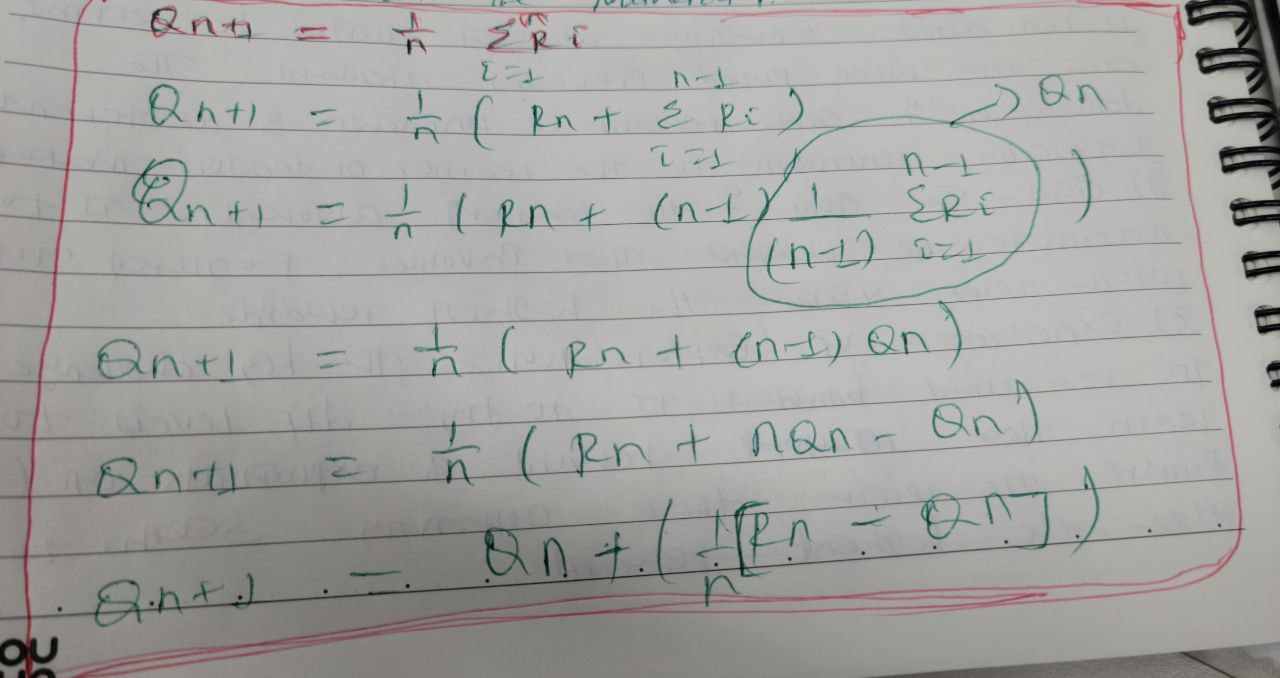 Qn+1 = 1/n Σ^n_{i=1} Ri
Qn+1 = 1/n ( Rn + Σ^{n-1}_{i=1} Ri )
→ Qn
Qn+1 = 1/n ( Rn + (n-1) 1/(n-1) Σ^{n-1}_{i=1} Ri )
Qn+1 = 1/n ( Rn + (n-1) Qn )
Qn+1 = 1/n ( Rn + nQn - Qn )
Qn+1 = Qn + ( 1/n [Rn - Qn] )
OU